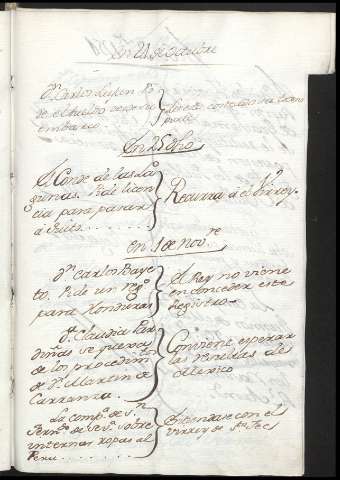 En 21 de Octubre
Dn. Carlos
embarco
En 25 dho
El Conde de las La
gunas. Pide licen
cia para pasar
á Quito
Recurra á el Virrey.
en 1 de Novre
Dn. Carlos Baye
to. Pide un regro
para Honduras
El Rey no viene
en conceder este
Registro.
Da. Claudia Par
diñas se quexa
de los procedimtos
de Dn. Martin de
Carranza
Conviene esperar
las resultas de
Mexico
La Compa. de Sn
Fern. de Seva. sobre
internar ropas al
Peru
Entiendase con el
Virrey de Sta. Fee